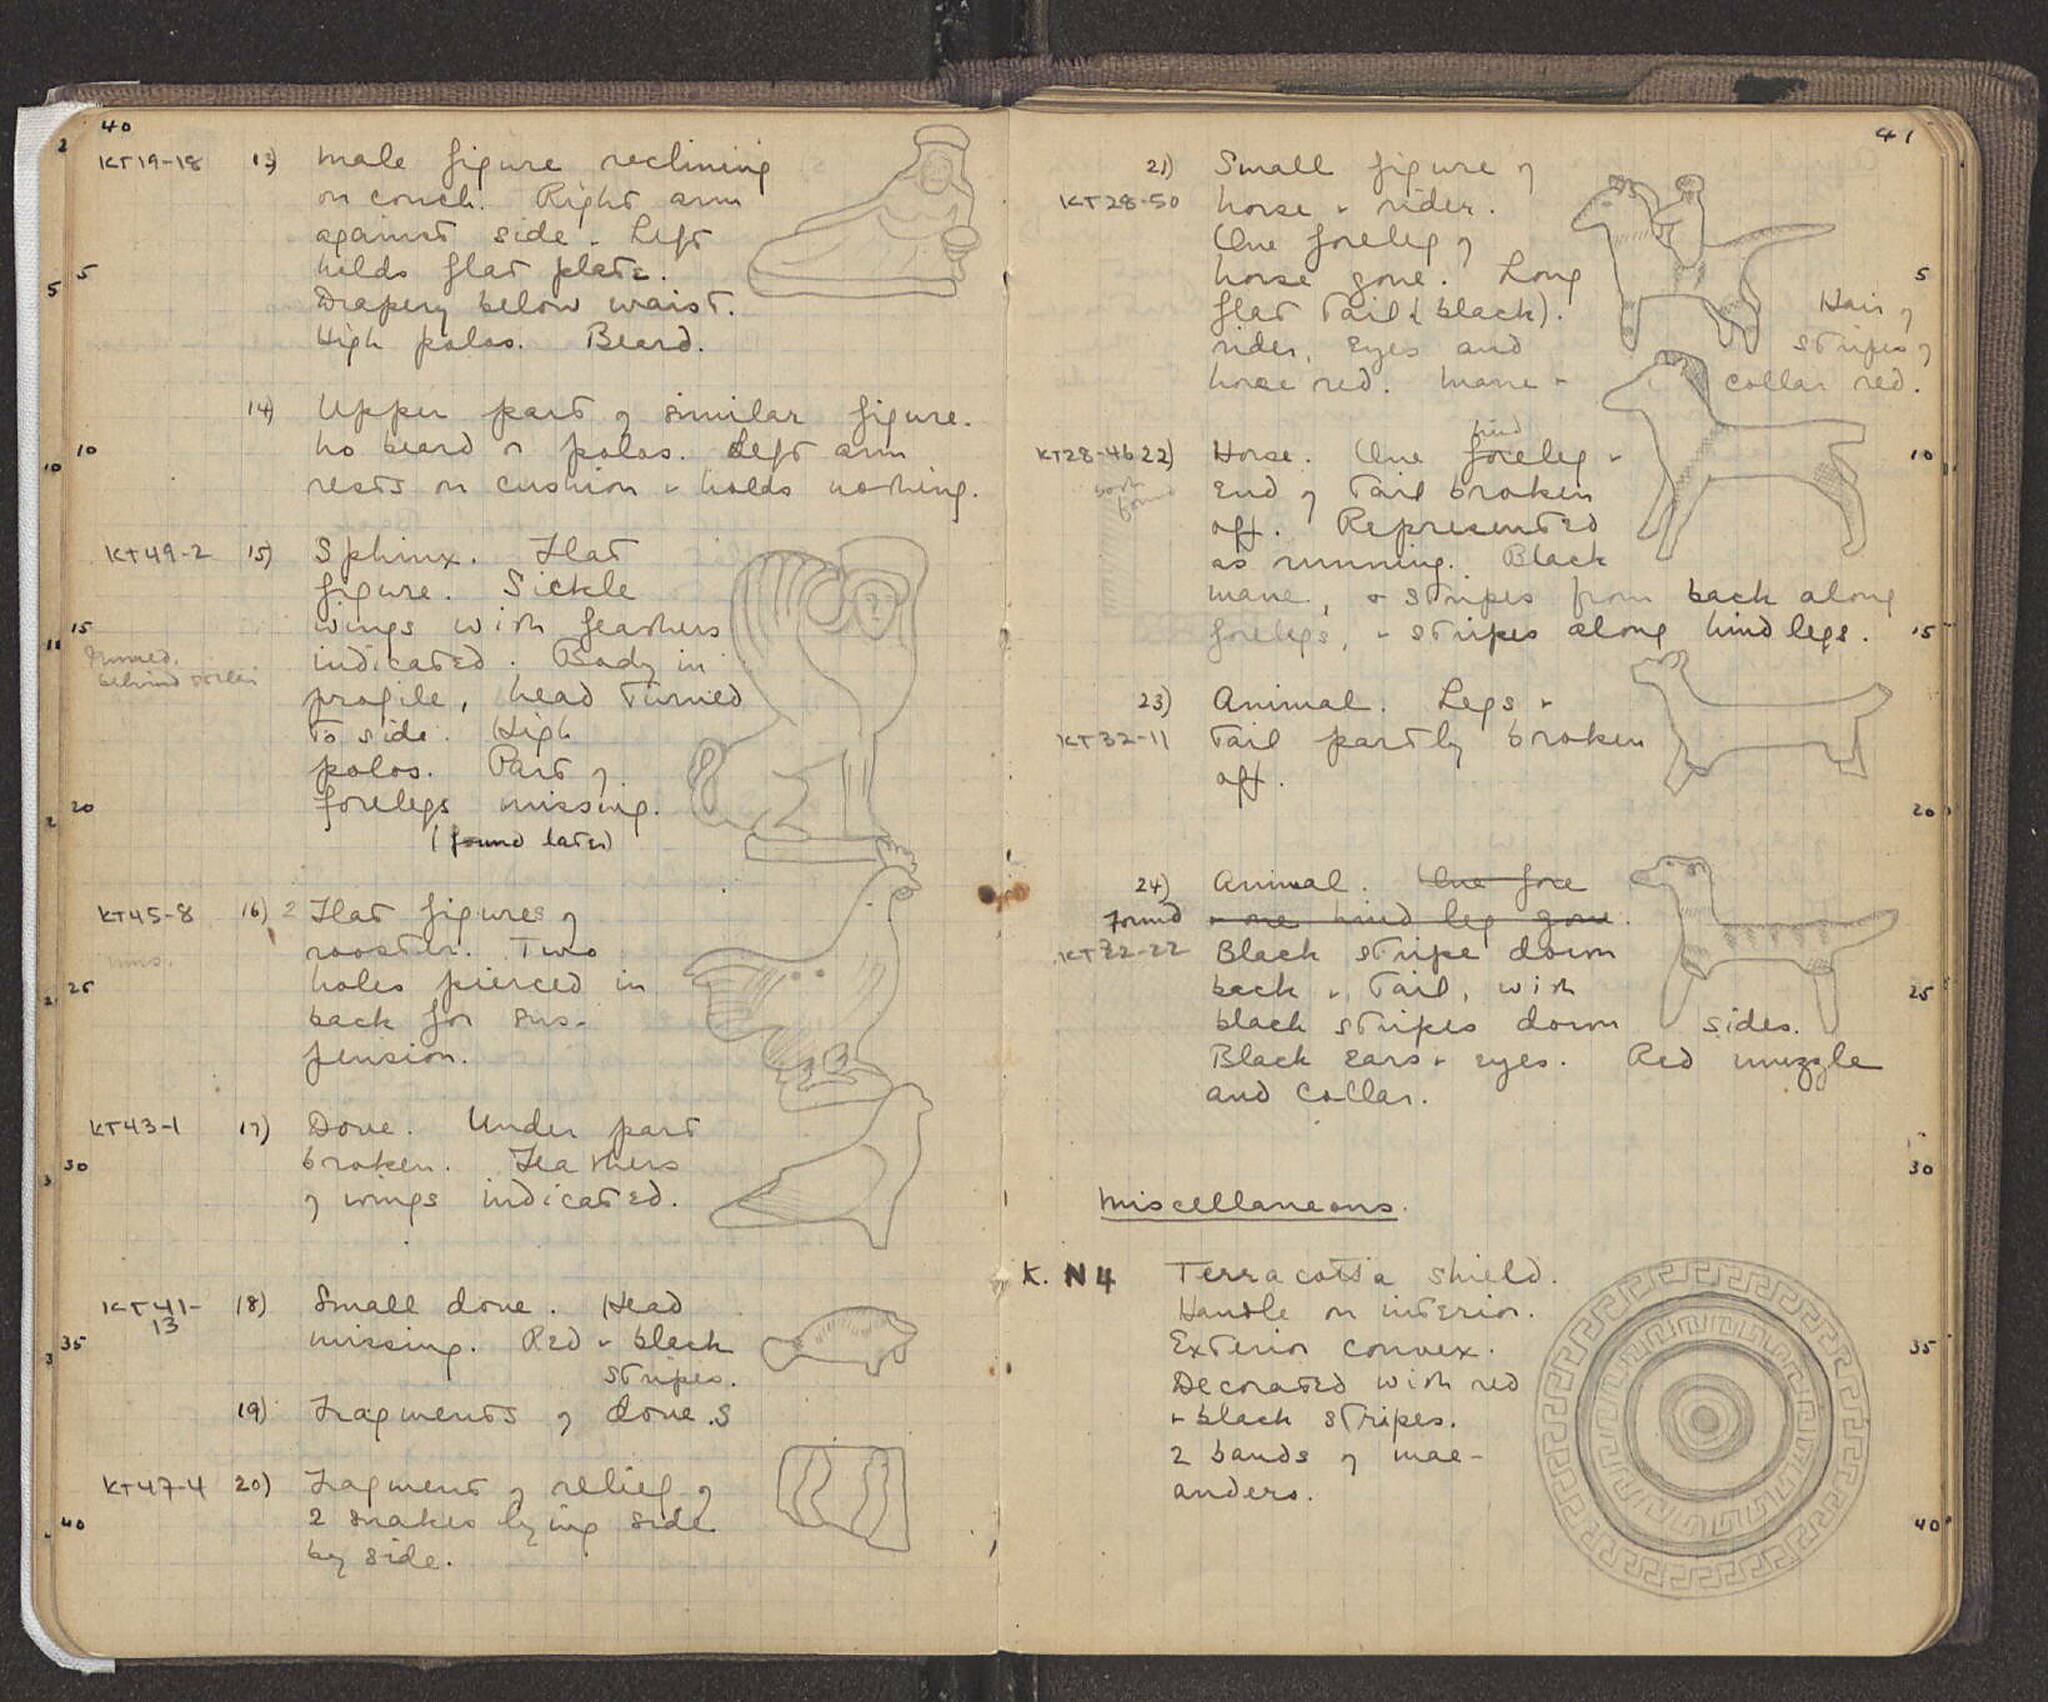 40
KT19-18 13) Male figure reclining
on couch. Right arm
against side. Left
5 holds flat plate.
5
Drapery below waist.
High polos. Beard.
14) Upper part of similar figure.
10 No beard or polos. Left arm
10
rests on cushion & holds nothing.
KT49-2 15) Sphinx. Flat
figure. Sickle
15 wings with feathers
indicated. Body in
behind
profile, head turned
to side. High
polos. Part of
20 forelegs missing.
(found later)
KT45-8 16) 2 Flat figures of
rooster. Two
25 holes pierced in
back for sus-
pension.
KT43-1 17) Dove. Under part
30 broken. Feathers
of wings indicated.
KT41- 18) Small dove. Head
13
35 missing. Red & black
stripes.
19) Fragments of dove.s
KT47-4 20) Fragment of relief of
40 2 snakes lying side
by side.
41
21) Small figure of
KT28-50 horse & rider.
One foreleg of
horse gone. Long 5
flat tail (black). Hair of
rider, eyes and stripes of
horse red. Mane & collar red.
hind
KT28-46 22) Horse. One foreleg & 10
both
found
end of tail broken
off. Represented
as running. Black
mane, & stripes from back along
forelegs, & stripes along hind legs. 15
23) Animal. Legs &
KT32-11 tail partly broken
off.
20
24) Animal. One fore
Found & one hind leg gone.
KT32-22 Black stripe down
back & tail, with 25
black stripes down sides.
Black ears & eyes. Red muzzle
and collar.
30
Miscellaneous.
K. N4 Terracotta shield.
Handle on interior.
Exterior convex. 35
Decorated with red
& black stripes.
2 bands of mae-
anders.
40